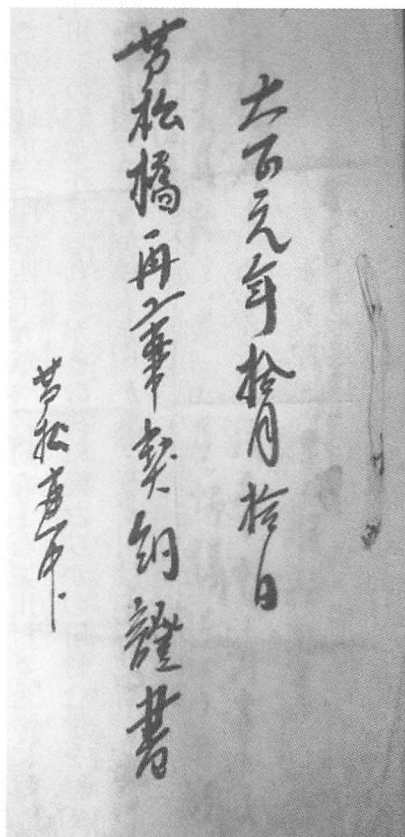 大正元年拾月拾日
若松橋再工事契約證書
若松